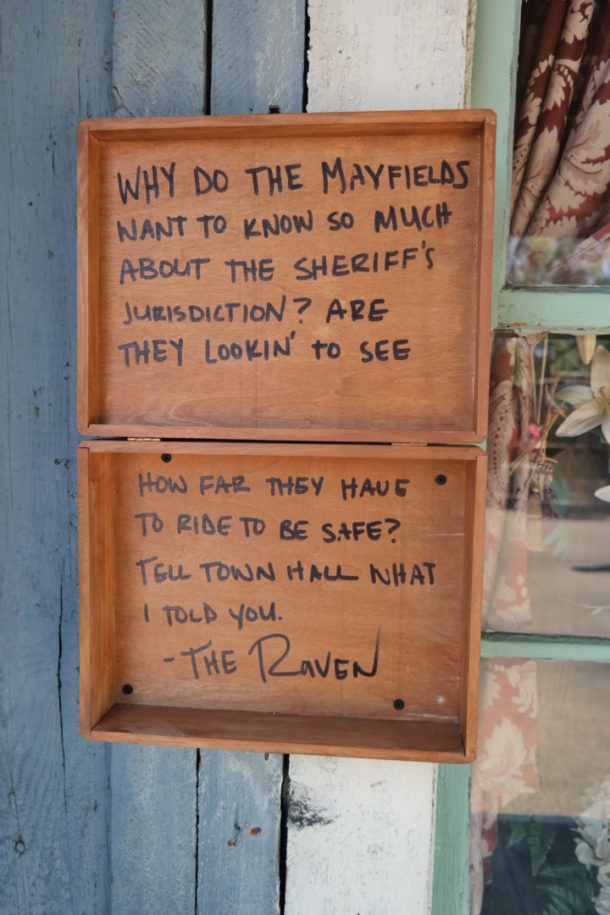 WHY DO THE MAYFIELDS
WANT TO KNOW SO MUCH
ABOUT THE SHERIFF'S
JURISDICTION? ARE
THEY LOOKIN' TO SEE
HOW FAR THEY HAVE
TO RIDE TO BE SAFE?
TELL TOWN HALL WHAT
I TOLD YOU.
-THE RAVEN